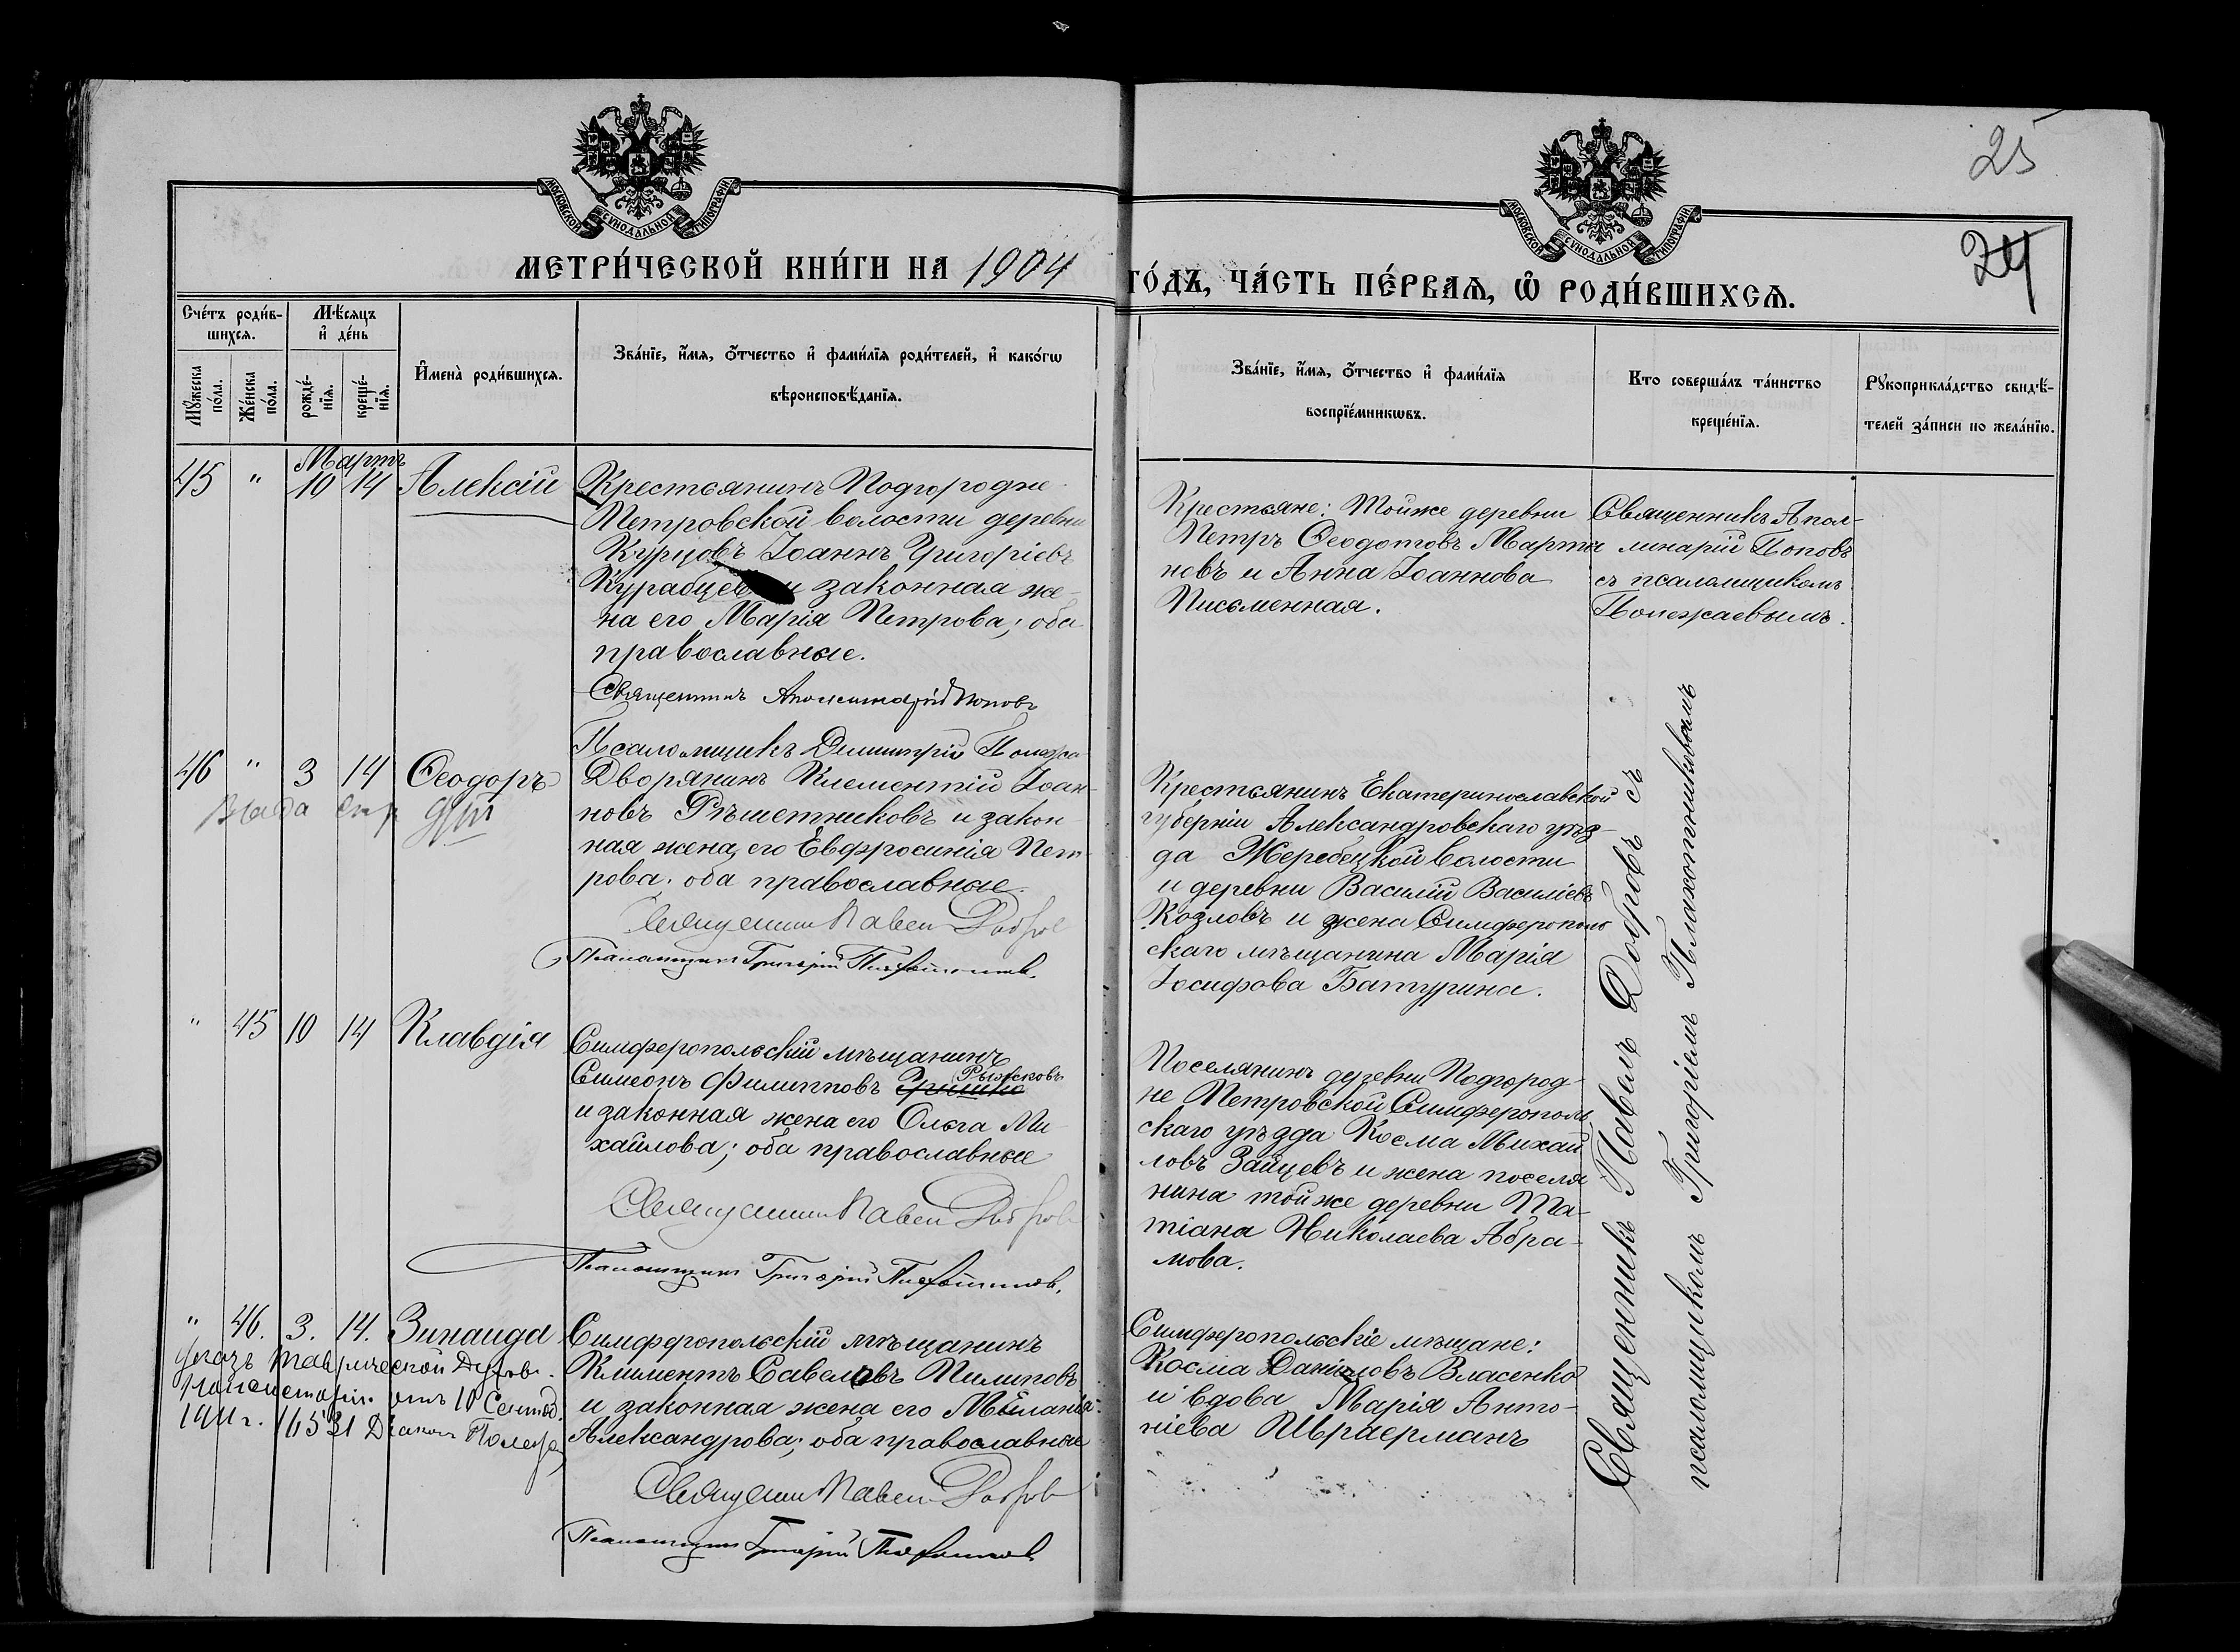 МОСКОВСКОЙ СѴНОДАЛЬНОЙ ТИПОГРАФІИ
МОСКОВСКОЙ СѴНОДАЛЬНОЙ ТИПОГРАФІИ
25
24
МЕТРИ́ЧЕСКОЙ КНИ́ГИ НА 1904 ГО́ДЪ, ЧА́СТЬ ПЕ́РВАЯ, Ѡ РОДИ́ВШИХСЯ.
Сче́тъ роди́в-
шихся.
Мѣ́сяцъ
и де́нь
Мꙋ́жеска
по́ла.
Же́нска
по́ла.
рожде́-
нїя.
креще́-
нїя.
Имена̀ роди́вшихся.
Зва́нїе, и́мя, о́тчество и фами́лїя роди́телей, и како́гѡ
вѣроисповѣ́данїя.
Зва́нїе, и́мя, о́тчество и фами́лїя
воспрїе́мникѡвъ.
Кто соверша́лъ та́инство
креще́нїя.
Рꙋкоприкла́дство свидѣ́-
телей за́писи по жела́нїю.
Мартъ
45 " 10 14 Алексій
Крестьянинъ Подгородне
Петровской волости деревни
Курцовъ Іоаннъ Григоріевъ
Курабцев и законная же-
на его Марія Петрова; оба
православные.
Священникъ Аполлинарій Поповъ
Псаломщикъ Димитрій Полежа
Крестьяне: тойже деревни
Петръ Ѳеодотовъ Марты
невъ и Анна Іоаннова
Письменная.
Священникъ Апол-
линарій Поповъ
съ псаломщикомъ
Полежаевымъ.
46 " 3 14 Ѳеодоръ
Дворянинъ Клементій Іоан-
новъ Рѣшетниковъ и закон-
ная жена его Евфросинія Пет-
рова; оба православные.
Священникъ Павелъ Добровъ
Псаломщикъ Григорій Плахотниковъ.
Крестьянинъ Екатеринославской
губерніи Александровскаго уѣз-
да Жеребецкой волости
и деревни Василій Васильевъ
Козловъ и жена Симферополь
скаго мѣщанина Марія
Іосифова Батурина.
" 45 10 14 Клавдія
Симферопольскій мѣщанинъ
Симеонъ Филипповъ Рыжковъ
и законная жена его Ольга Ми-
хайлова; оба православные
Священникъ Павелъ Добровъ
Псаломщикъ Григорій Плахотниковъ.
Поселянинъ деревни Подгород-
не Петровской Симферополь
скаго уѣзда Косма Михай
ловъ Зайцевъ и жена поселя
нина тойже деревни Та-
тіана Николаева Абра-
мова.
" 46. 3. 14. Зинаида
Указъ Таврической Духов.
Консисторіи отъ 10 Сентяб.
1911 г. 16531 Діаконъ Полежа
Симферопольскій мѣщанинъ
Климентъ Савеловъ Пилиповъ
и законная жена его Меланія
Александрова; оба православные
Священникъ Павелъ Добровъ
Псаломщикъ Григорій Плахотниковъ
Симферопольскіе мѣщане:
Косма Даніиловъ Власенко
и вдова Марія Анто-
ніева
Священникъ Павелъ Добровъ съ
псаломщикомъ Григоріемъ Плахотниковымъ